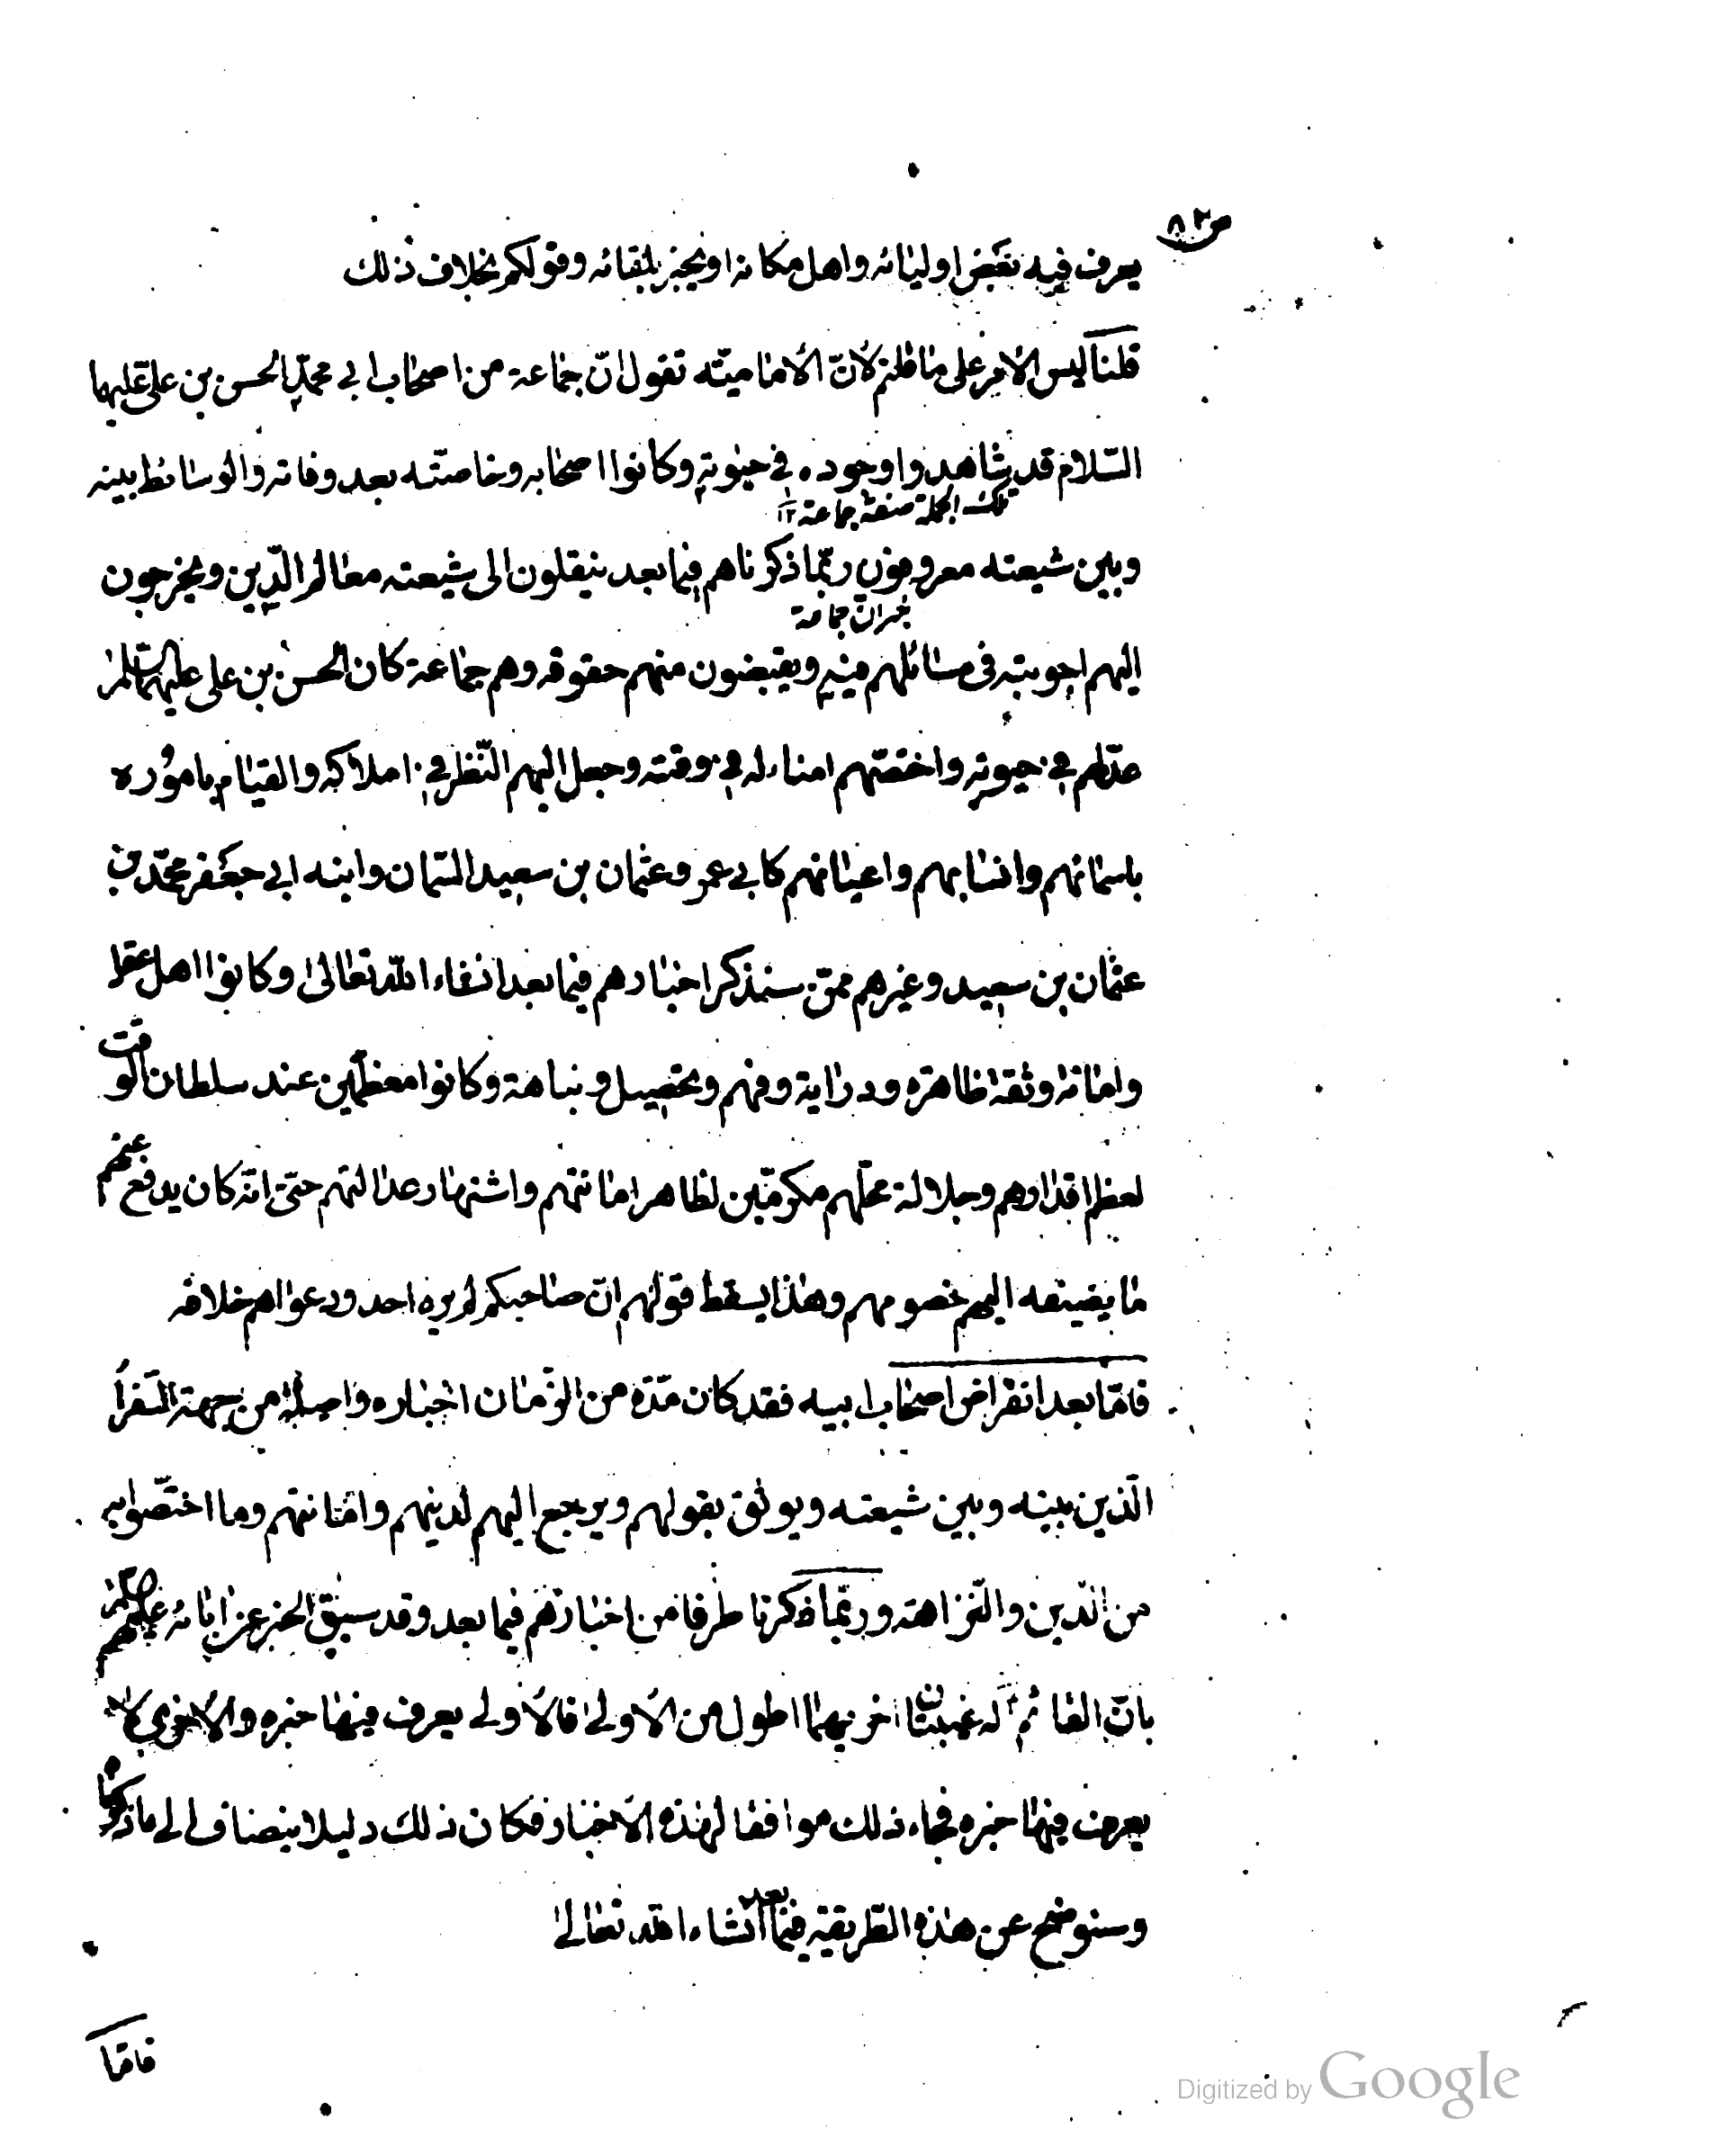 ص ٨٢
يعرف فيه بعض اوليائه واهل مكانه او يخبر بلقائه وقولكم بخلاف ذلك
قلنا ليس الامر على ما ظنتم لانّ الاماميّه تقول انّ جماعة من اصحاب ابي محمّد الحسن بن علي عليهما
السّلام قد شاهدوا وجوده في حيوته وكانوا اصحابه وخاصّته بعد وفاته والوسائط بينه
تلك الجملة صفة جماعة ١٢
وبين شيعته معروفون ربّما ذكرناهم فيما بعد ينقلون الى شيعته معالم الدّين ويخرجون
خبر انّ جماعة
اليهم اجوبته في مسائلهم فيه ويقبضون منهم حقوقه وهم جماعة كان الحسن بن علي عليهما السّلام
عدّلهم في حيوته واختصّهم امناء له في وقته وجعل اليهم النّظر في املاكه والقيام باموره
باسمائهم وانسابهم واعيانهم كابي عمرو عثمان بن سعيد السّمان وابنه ابي جعفر محمّد بن
عثمان بن سعيد وغيرهم ممّن سنذكر اخبارهم فيما بعد انشاء الله تعالى وكانوا اهل عقل
وامانة وثقة ظاهرة ودراية وفهم وتحصيل ونباهة وكانوا معظّمين عند سلطان الوقت
لعظم اقدارهم وجلالة محلّهم مكرمّين لظاهر امانتهم واشتهار عدالتهم حتّى انّه كان يدفع عنهم
ما يضيفه اليهم خصومهم وهذا يسقط قولهم انّ صاحبكم لم يره احد ودعواهم خلافه
فامّا بعد انقراض اصحاب ابيه فقد كان مدّة من الزّمان اخباره واصلة من جهة السّفراء
الّذين بينه وبين شيعته ويوثق بقولهم ويرجع اليهم لدينهم وامانتهم وما اختصّوا به
من الدّين والنّزاهة وربّما ذكرنا طرفا من اخبارهم فيما بعد وقد سبق الخبر عن ابائه عليهم
بانّ القائم له غيبتان اخريهما اطول من الاولى فالاولى يعرف فيها خبره والاخرى لا
يعرف فيها خبره فجاء ذلك موافقا لهذه الاخبار فكان ذلك دليلا ينضاف الى ما ذكرنا
وسنوضح عن هذه الطّريقة فيما بعد انشاء الله تعالى
فامّا
Digitized by Google